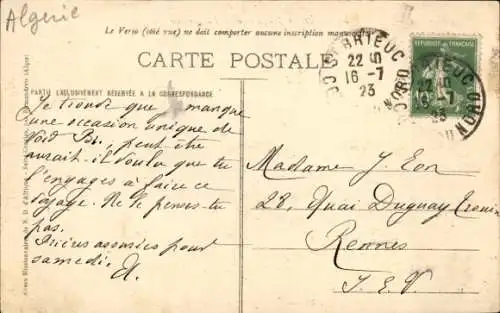 Algérie
Le Verso (côté vue) ne doit comporter aucune inscription manuscrite
CARTE POSTALE
PARTIE EXCLUSIVEMENT RÉSERVÉE A LA CORRESPONDANCE
Je trouve que manque
une occasion unique de
voir Br., peut être
aurait-il voulu que tu
l'engages à faire ce
voyage. Ne le penses-tu
pas.
assurées pour
samedi.
ST BRIEUC
22 15
16 -7
23
DU NORD
REPUBLIQUE FRANÇAISE
BRIEUC
22 15
16 -7
23
DU NORD
Madame J. Eon
28, Quai Duguay Trouin
Rennes
I. E. V.